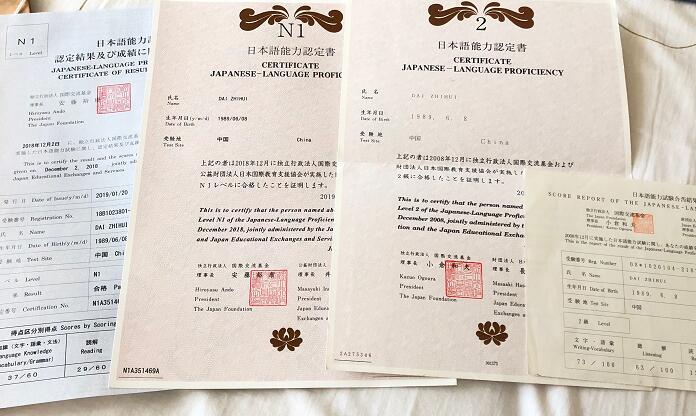 N1
レベル Level
日本語能力試
認定結果及び成績に関
JAPANESE-LANGUAGE PRO
CERTIFICATE OF RESU
独立行政法人 国際交流基金
理事長 安藤裕
Hiroyasu Ando
President
The Japan Foundation
2018年12月2日
This is to certify the result and the scores
given on December 2, 2018
Japan Educational Exchanges and Services
Date of Issue(y/m/d) 2019/01/20
受験番号 Registration No. 18B1023801-
氏名 Name DAI ZHIHUI
Date of Birth(y/m/d) 1989/06/08
受験地 Test Site 中国
レベル Level N1
結果 Result 合格 Pa
Certification No. N1A3514
得点区分別得点 Scores by Scoring
(文字・語彙・文法)
Language Knowledge
(Vocabulary/Grammar)
読解
Reading
37/60
29/60
N1
日本語能力認定書
CERTIFICATE
JAPANESE-LANGUAGE PROFICI
氏名
Name
DAI ZHIHUI
生年月日(y/m/d)
Date of Birth
1989/06/08
受験地
Test Site
中国
China
上記の者は2018年12月に独立行政法人国際交流
公益財団法人日本国際教育支援協会が実施した日
N1レベルに合格したことを証明します。
20
This is to certify that the person named abo
Level N1 of the Japanese-Language Proficie
December 2018, jointly administered by the Ja
and Japan Educational Exchanges and Service
独立行政法人 国際交流基金
理事長 安藤裕康
Hiroyasu Ando
President
The Japan Foundation
公益財団法人 日
理事長 井
Masayuki In
President
Japan Educat
Exchanges an
N1A351469A
2
日本語能力認定書
CERTIFICATE
JAPANESE-LANGUAGE PROFICIENCY
氏名
Name
DAI ZHIHUI
生年月日
Date of Birth
1989. 6. 8
受験地
Test Site
中国
China
上記の者は2008年12月に独立行政法人国際交流基金および
財団法人日本国際教育支援協会が実施した日本語能力試験
2級に合格したことを証明します。
This is to certify that the person named above
Level 2 of the Japanese-Language Proficiency
December 2008, jointly administered by the
Japan Educational Exchanges
独立行政法人 国際交流基金
理事長 小倉和夫
Kazuo Ogoura
President
The Japan Foundation
財団法人 日本
理事長
President
Japan
Exchanges and
2A275346
日本語能力試験合否結果
SCORE REPORT OF THE JAPANESE-LA
受験番号 Reg. Number
氏名 Name DAI ZHIHUI
生年月日 Date of Birth 1989. 6. 8
受験地 Test Site 中国
2級 Level
文字・語彙
Writing-Vocabulary
聴解
Listening
73 / 100
63 / 100